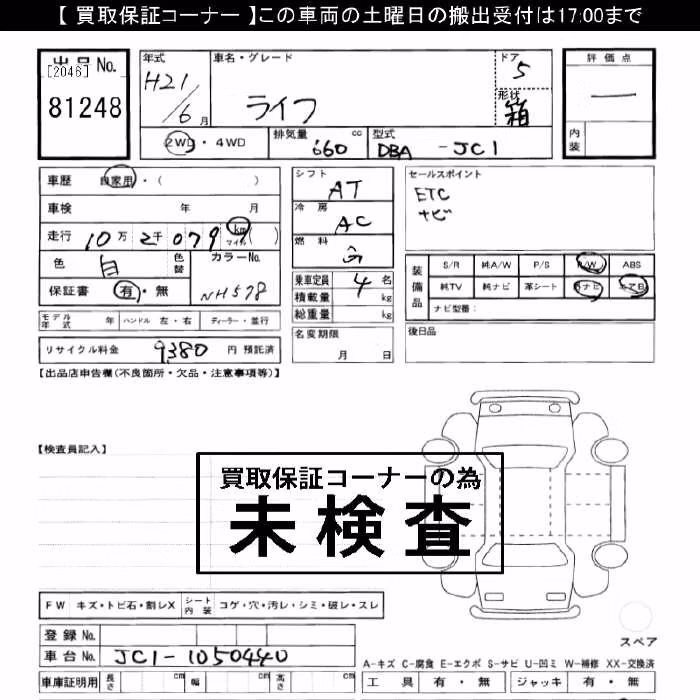 【 買取保証コーナー 】この車両の土曜日の搬出受付は17:00まで
出品No.
[2046]
81248
年式
H21/6月
車名・グレード
ライフ
ドア
5
形状
箱
評価点
内装
2WD・4WD
排気量 660 cc
型式 DBA - JC1
車歴 自家用・( )
車検 年 月
走行 10万 2千 079 km マイル ( )
色 白 色替
カラーNo. NH578
保証書 有・無
モデル年式 年 ハンドル 左・右 ディーラー・並行
リサイクル料金 9380 円 預託済
シフト AT
冷房 AC
燃料 ガ
乗車定員 4 名
積載量 kg
総重量 kg
名変期限
月 日
セールスポイント
ETC
ナビ
装備品
S/R 純A/W P/S R/W ABS
純TV 純ナビ 革シート 外ナビ エアB
ナビ型番:
後日品
【出品店申告欄(不良箇所・欠品・注意事項等)】
【検査員記入】
買取保証コーナーの為
未検査
FW キズ・トビ石・割レX シート内装 コゲ・穴・汚レ・シミ・破レ・スレ
登録No.
車台No. JC1-1050440
車庫証明用 長さ cm 幅 cm 高さ cm
スペア
A-キズ C-腐食 E-エクボ S-サビ U-凹ミ W-補修 XX-交換済
工具 有・無 ジャッキ 有・無